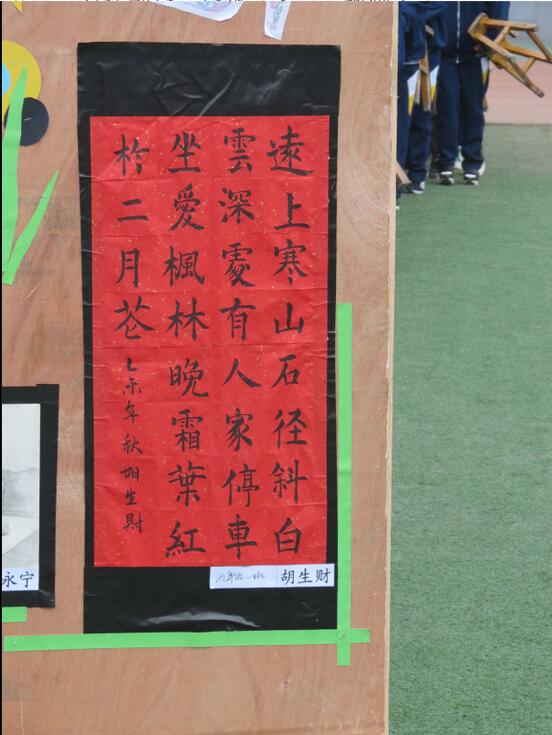 遠上寒山石径斜白
雲深處有人家停車
坐愛楓林晚霜葉紅
於二月花
乙未年秋胡生財
胡生财
永宁